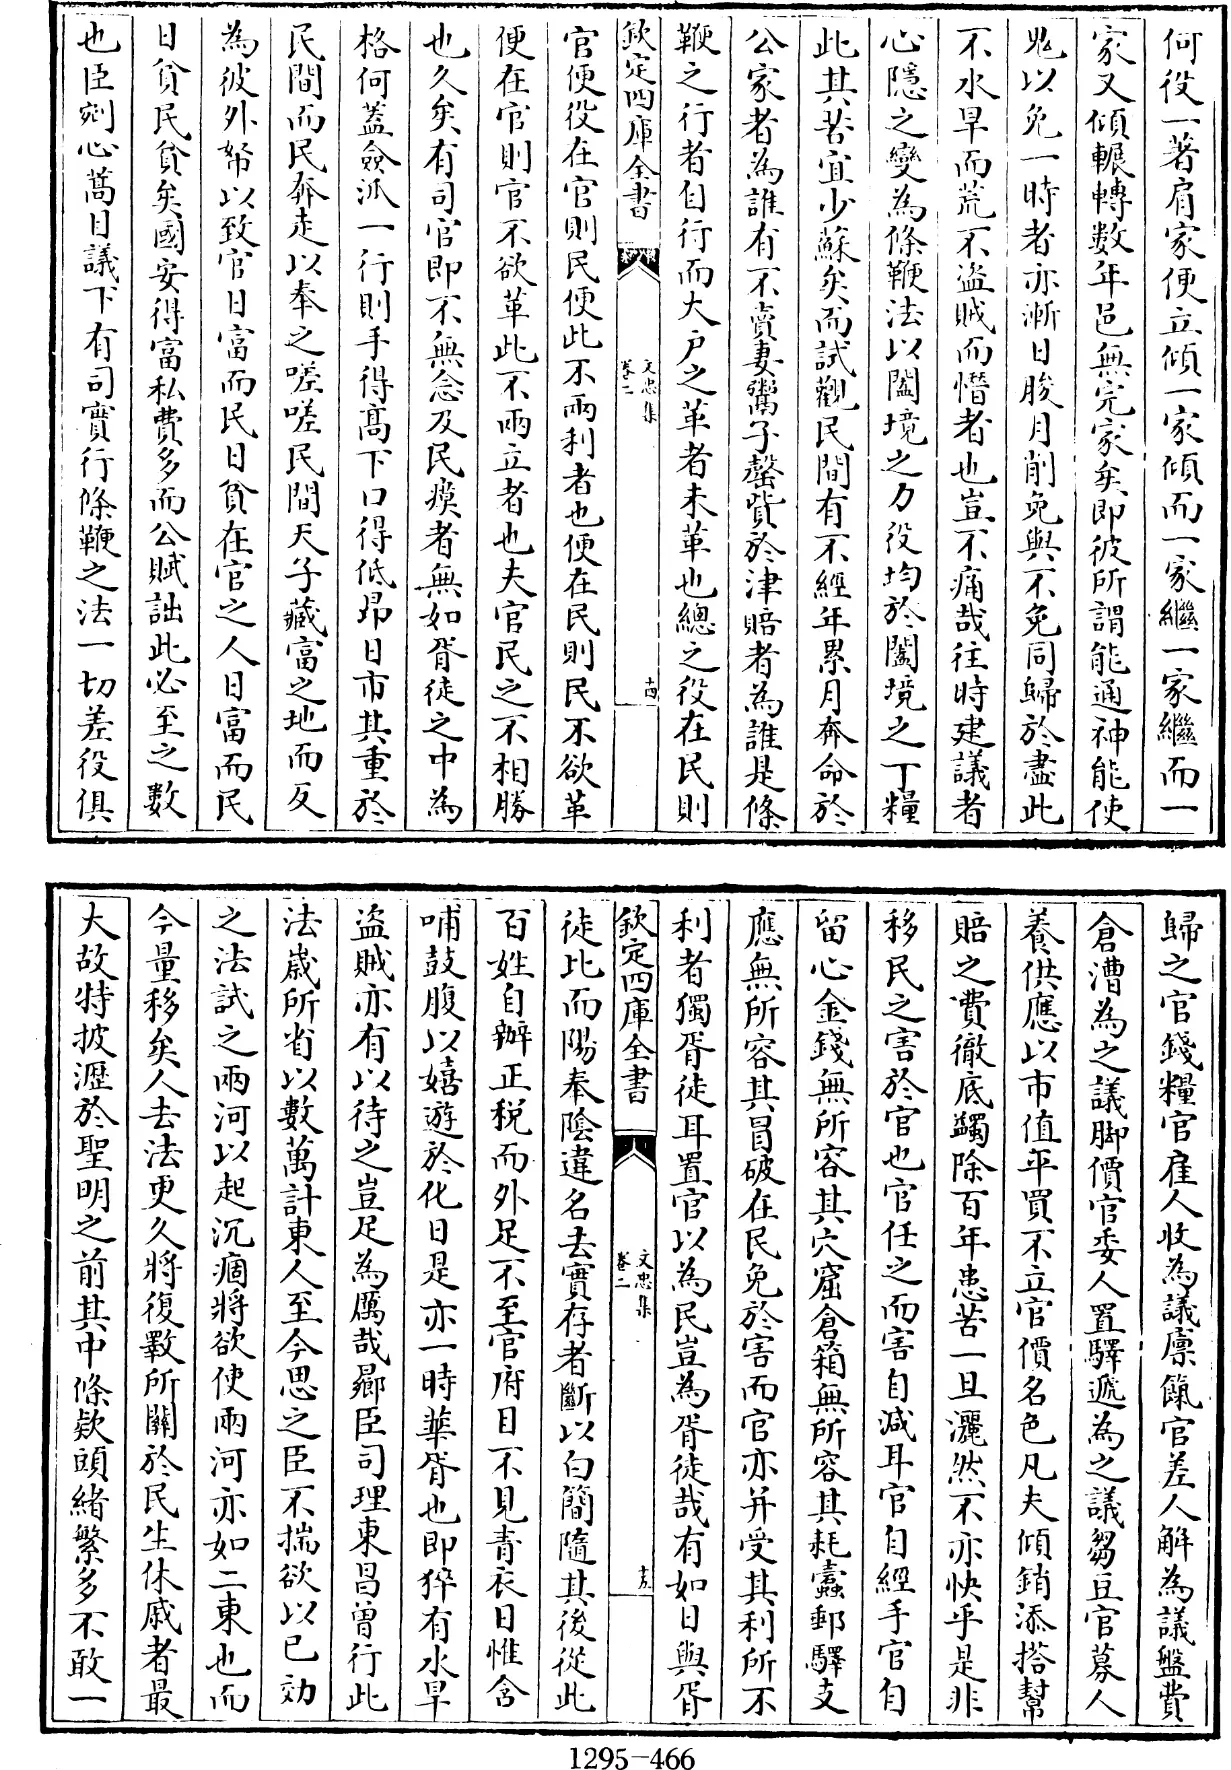 何役一著肩家便立傾一家傾而一家繼一家繼而一
家又傾輾轉數年邑無完家矣即彼所謂能通神能使
鬼以免一時者亦漸日朘月削免與不免同歸於盡此
不水旱而荒不盜賊而慘者也豈不痛哉往時建議者
心隱之變為條鞭法以闔境之力役均於闔境之丁糧
此其苦宜少蘇矣而試觀民間有不經年累月奔命於
公家者為誰有不賣妻鬻子罄貲於津賠者為誰是條
鞭之行者自行而大戶之革者未革也總之役在民則
欽定四庫全書
文忠集
卷二
十四
官便役在官則民便此不兩利者也便在民則民不欲革
便在官則官不欲革此不兩立者也夫官民之不相勝
也久矣有司官即不無念及民瘼者無如胥徒之中為
格何蓋僉派一行則手得高下口得低昂日市其重於
民間而民奔走以奉之嗟嗟民間天子藏富之地而反
為彼外帑以致官日富而民日貧在官之人日富而民
日貧民貧矣國安得富私費多而公賦詘此必至之數
也臣剜心蒿目議下有司實行條鞭之法一切差役俱
歸之官錢糧官雇人收為議廩餼官差人解為議盤費
倉漕為之議脚價官委人置驛遞為之議芻豆官募人
養供應以市值平買不立官價名色凡夫傾銷添搭幫
賠之費徹底蠲除百年患苦一旦灑然不亦快乎是非
移民之害於官也官任之而害自減耳官自經手官自
留心金錢無所容其穴窟倉箱無所容其耗蠹郵驛支
應無所容其冒破在民免於害而官亦并受其利所不
利者獨胥徒耳置官以為民豈為胥徒哉有如日與胥
欽定四庫全書
文忠集
卷二
十五
徒比而陽奉陰違名去實存者斷以白簡隨其後從此
百姓自辦正稅而外足不至官府目不見青衣日惟含
哺鼓腹以嬉遊於化日是亦一時華胥也即猝有水旱
盜賊亦有以待之豈足為厲哉鄉臣司理東昌曾行此
法歲所省以數萬計東人至今思之臣不揣欲以已効
之法試之兩河以起沉痼將欲使兩河亦如二東也而
今量移矣人去法更久將復斁所關於民生休戚者最
大故特披瀝於聖明之前其中條款頭緒繁多不敢一
1295-466